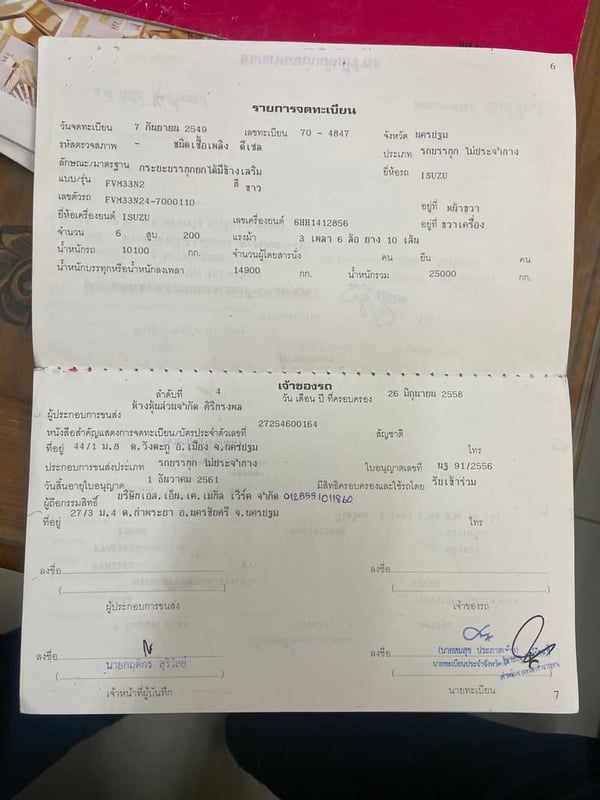 6
รายการจดทะเบียน
วันจดทะเบียน 7 กันยายน 2549 เลขทะเบียน 70 - 4847 จังหวัด นครปฐม
รหัสตรวจสภาพ - ชนิดเชื้อเพลิง ดีเซล ประเภท รถบรรทุก ไม่ประจำทาง
ลักษณะ/มาตรฐาน กระบะบรรทุกยกได้มีข้างเสริม ยี่ห้อรถ ISUZU
แบบ/รุ่น FVM33N2 สี ขาว
เลขตัวรถ FVM33N24-7000110 อยู่ที่ หน้าขวา
ยี่ห้อเครื่องยนต์ ISUZU เลขเครื่องยนต์ 6HH1412856 อยู่ที่ ขวาเครื่อง
จำนวน 6 สูบ 200 แรงม้า 3 เพลา 6 ล้อ ยาง 10 เส้น
น้ำหนักรถ 10100 กก. จำนวนผู้โดยสารนั่ง คน ยืน คน
น้ำหนักบรรทุกหรือน้ำหนักลงเพลา 14900 กก. น้ำหนักรวม 25000 กก.
เจ้าของรถ
ลำดับที่ 4 วัน เดือน ปี ที่ครอบครอง 26 มิถุนายน 2558
ผู้ประกอบการขนส่ง ห้างหุ้นส่วนจำกัด ศิริทรงพล
หนังสือสำคัญแสดงการจดทะเบียน/บัตรประจำตัวเลขที่ 27254600164 สัญชาติ
ที่อยู่ 44/1 ม.8 ต.วังตะกู อ.เมือง จ.นครปฐม โทร
ประกอบการขนส่งประเภท รถบรรทุก ไม่ประจำทาง ใบอนุญาตเลขที่ นฐ 91/2556
วันสิ้นอายุใบอนุญาต 1 ธันวาคม 2561 มีสิทธิครอบครองและใช้รถโดย รับเข้าร่วม
ผู้ถือกรรมสิทธิ์ บริษัทเอส.เอ็น.เค.เมทัล เวิร์ค จำกัด
ที่อยู่ 27/3 ม.4 ต.ท่าพระยา อ.นครชัยศรี จ.นครปฐม โทร
ลงชื่อ ลงชื่อ
( ) ( )
ผู้ประกอบการขนส่ง เจ้าของรถ
ลงชื่อ ลงชื่อ
นายกฤติกร สุริวัลย์ (นายสมสุข
( ) นายทะเบียนประจำจังหวัด
เจ้าหน้าที่ผู้บันทึก นายทะเบียน
7